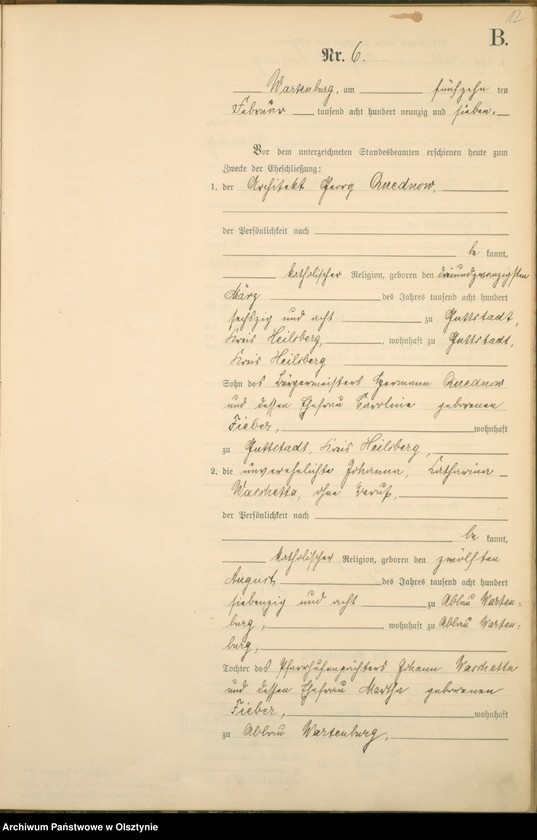 12
B.
Nr. 6.
Wartenburg, am fünfzehn ten
Februar tausend acht hundert neunzig und sieben.
Vor dem unterzeichneten Standesbeamten erschienen heute zum
Zwecke der Eheschließung:
1. der Architekt Georg Quednow.
der Persönlichkeit nach
be kannt,
katholischer Religion, geboren den dreiundzwanzigsten
März des Jahres tausend acht hundert
sechszig und acht zu Guttstadt,
Kreis Heilsberg, wohnhaft zu Guttstadt,
Kreis Heilsberg
Sohn des Bürgermeisters Hermann Quednow
und dessen Ehefrau Caroline geborenen
Fieber, wohnhaft
zu Guttstadt, Kreis Heilsberg,
2. die unverehelichte Johanna, Katharina
Waschetta, ohne Beruf,
der Persönlichkeit nach
be kannt,
katholischer Religion, geboren den zwölften
August des Jahres tausend acht hundert
siebenzig und acht zu Abbau Warten=
burg, wohnhaft zu Abbau Warten=
burg,
Tochter des Pfarrhufenpächters Johann Waschetta
und dessen Ehefrau Martha geborenen
Fieber, wohnhaft
zu Abbau Wartenburg,
Archiwum Państwowe w Olsztynie